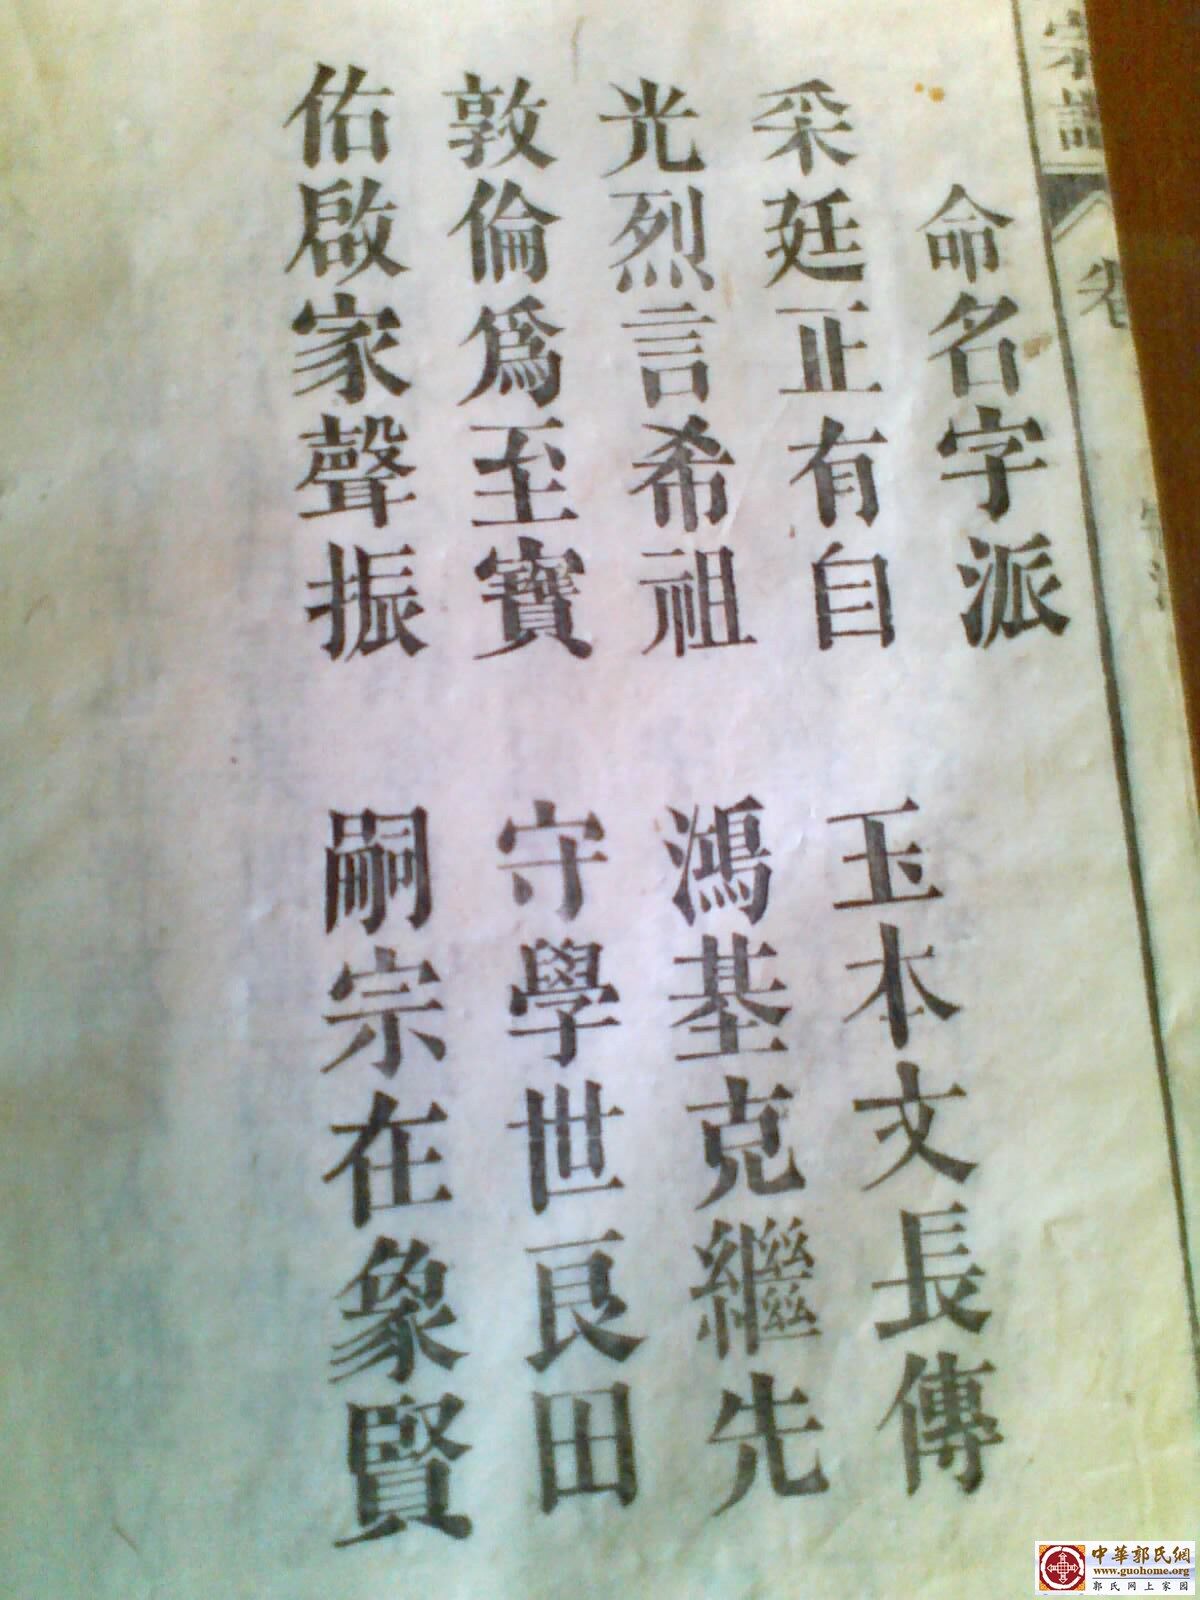 命名字派
采廷正有自 玉本文長傳
光烈言希祖 鴻基克繼先
敦倫爲至寶 守學世良田
佑啟家聲振 嗣宗在象賢
宗譜
卷
中華郭氏網
www.guohome.org
郭氏网上家园